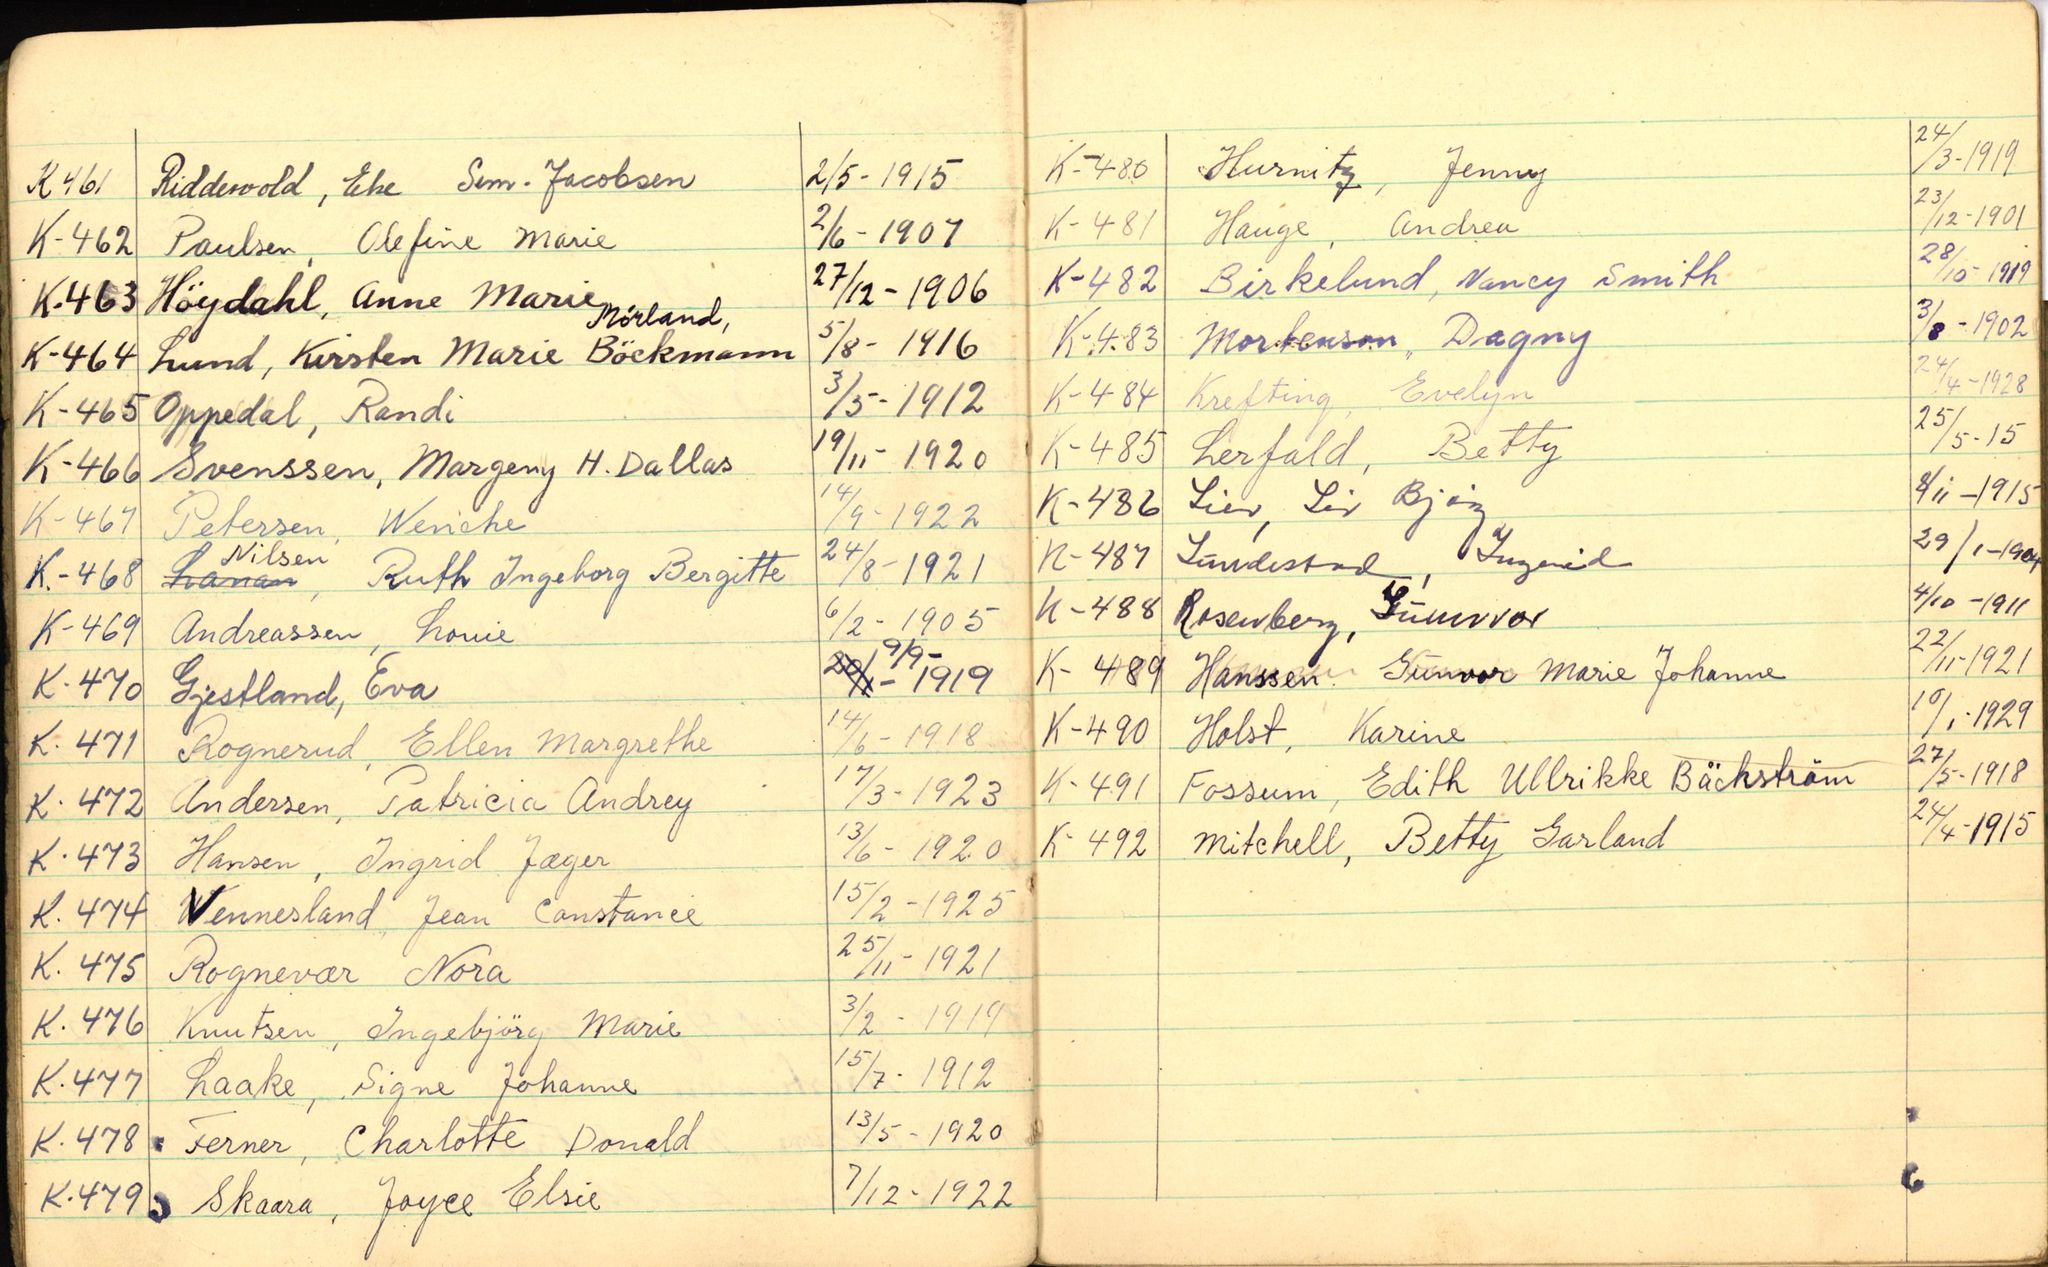 K 461 Riddervold, Eke Sem-Jacobsen 2/5-1915
K-462 Paulsen, Olefine Marie 2/6-1907
K.463 Höydahl, Anne Marie 27/12-1906
Mörland,
K-464 Lund, Kirsten Marie Böckmann 5/8-1916
K-465 Oppedal, Randi 3/5-1912
K-466 Svenssen, Margeny H. Dallas 19/11-1920
K-467 Petersen, Wenche 14/9-1922
Nilsen
K.-468 Lanan, Ruth Ingeborg Bergitte 24/8-1921
K-469 Andreassen, Louie 6/2-1905
9/9-
K.470 Gjestland, Eva -1919
K.471 Rognerud, Ellen Margrethe 14/6-1918
K.472 Andersen, Patricia Audrey 17/3-1923
K.473 Hansen, Ingrid Jæger 13/6-1920
K.474 Vennesland, Jean Constance 15/2-1925
K.475 Rognevær Nora 25/11-1921
K.476 Knutsen, Ingebjörg Marie 3/2-1919
K.477 Laake, Signe Johanne 15/7-1912
K.478 Ferner, Charlotte Donald 13/5-1920
K.479 Skaara, Joyce Elsie 7/12-1922
K-480 Hurnitz, Jenny 24/3-1919
K-481 Hauge, Andrea 23/12-1901
K-482 Birkelund, Nancy Smith 28/10-1919
K-483 Mortenson, Dagny 3/8-1902
K-484 Krefting, Evelyn 24/4-1928
K-485 Lerfald, Betty 25/5-15
K-486 Lier, Liv Bjöig 8/11-1915
K-487 Lundestad, Ingerid 29/1-1904
K-488 Rosenberg, Gunvor 4/10-1911
K-489 Hanssen Gunvor Marie Johanne 22/11-1921
K-490 Holst, Karine 10/1-1929
K-491 Fossum, Edith Ullrikke Bäckström 27/5-1918
K-492 Mitchell, Betty Garland 24/4-1915